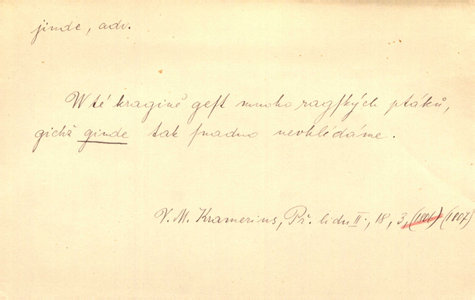 jinde, adv.
W té kragině geſt mnoho ragſkých ptáků,
gichž ginde tak ſnadno nevhlédáme.
V. M. Kramerius, Př. lidu II., 18, 3, (1806) (1807)